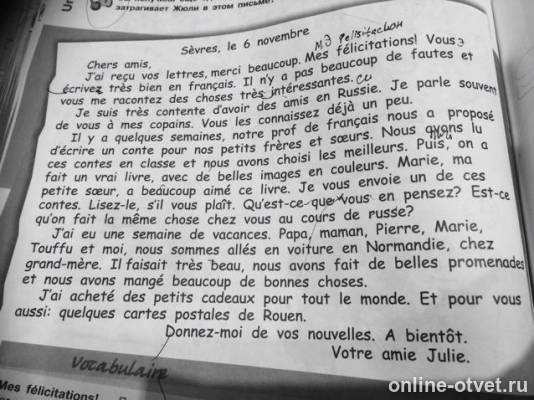 затрагивает Жюли в этом письме?
Sèvres, le 6 novembre
Chers amis,
J'ai reçu vos lettres, merci beaucoup. Mes félicitations! Vous
écrivez très bien en français. Il n'y a pas beaucoup de fautes et
vous me racontez des choses très intéressantes.
Je suis très contente d'avoir des amis en Russie. Je parle souvent
de vous à mes copains. Vous les connaissez déjà un peu.
Il y a quelques semaines, notre prof de français nous a proposé
d'écrire un conte pour nos petits frères et sœurs. Nous avons lu
ces contes en classe et nous avons choisi les meilleurs. Puis, on a
fait un vrai livre, avec de belles images en couleurs. Marie, ma
petite sœur, a beaucoup aimé ce livre. Je vous envoie un de ces
contes. Lisez-le, s'il vous plaît. Qu'est-ce que vous en pensez? Est-ce
qu'on fait la même chose chez vous au cours de russe?
J'ai eu une semaine de vacances. Papa, maman, Pierre, Marie,
Touffu et moi, nous sommes allés en voiture en Normandie, chez
grand-mère. Il faisait très beau, nous avons fait de belles promenades
et nous avons mangé beaucoup de bonnes choses.
J'ai acheté des petits cadeaux pour tout le monde. Et pour vous
aussi: quelques cartes postales de Rouen.
Donnez-moi de vos nouvelles. A bientôt.
Votre amie Julie.
Vocabulaire
Mes félicitations!
online-otvet.ru